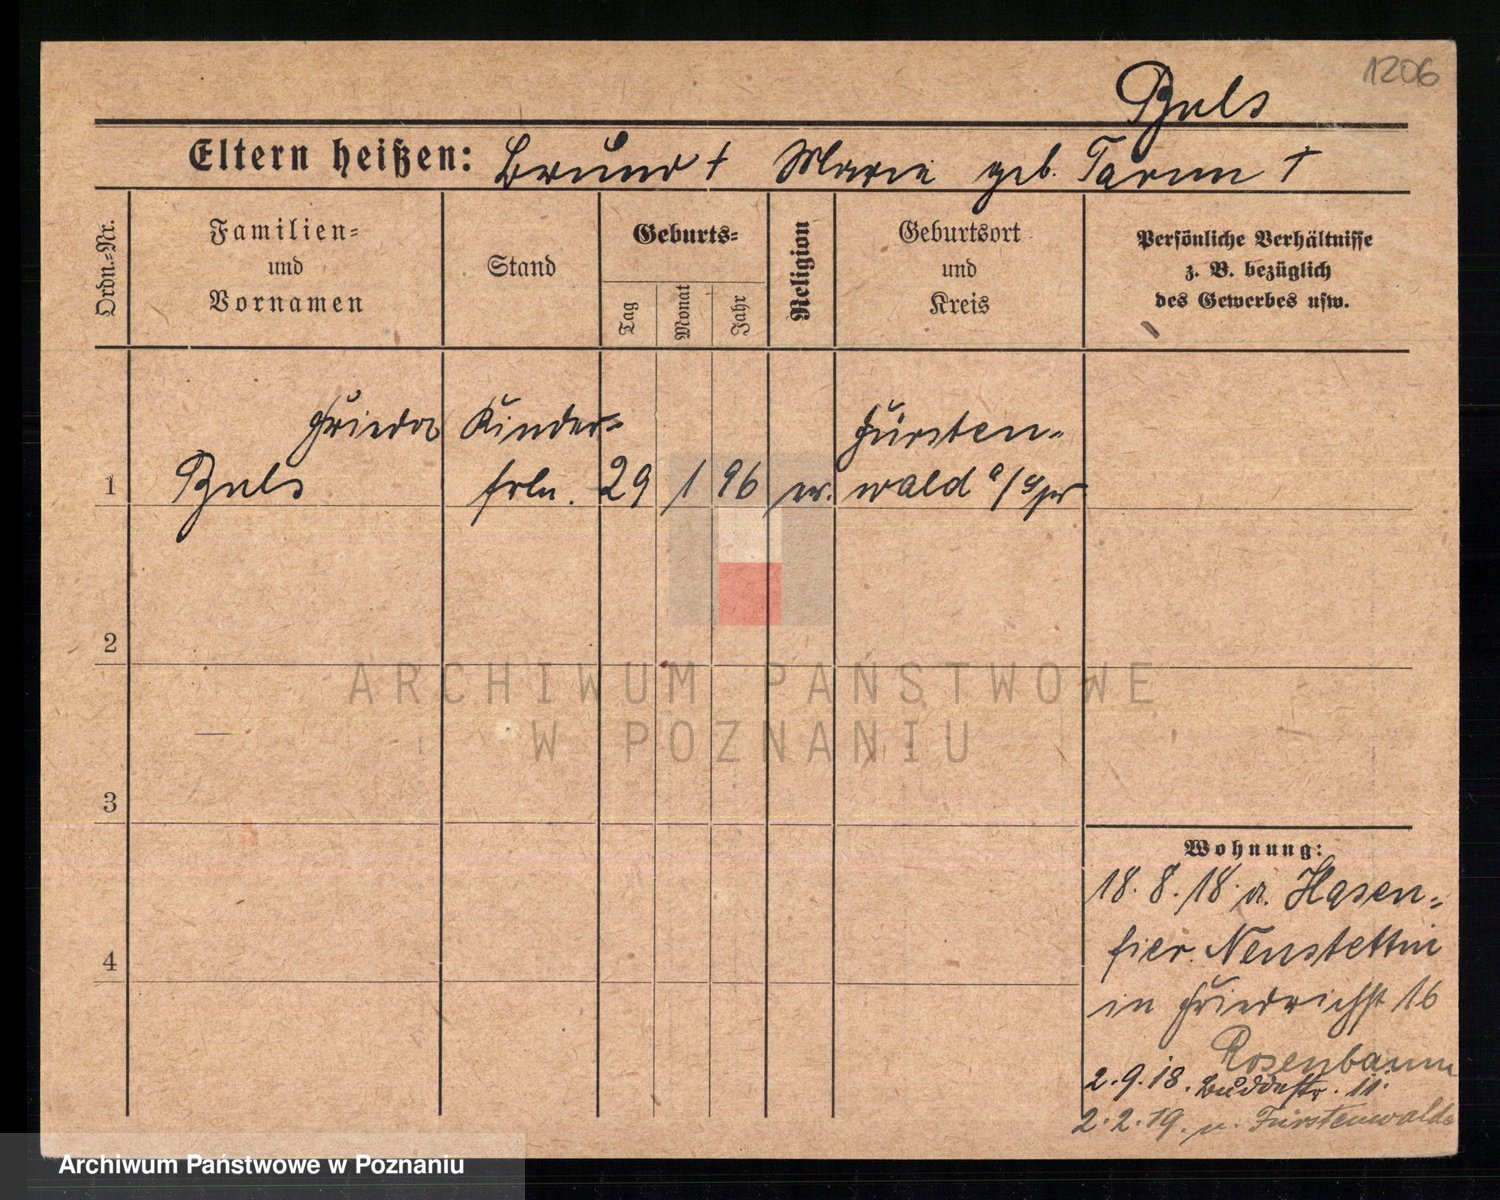 1206
Buls
Eltern heißen: Bruno † Marie geb. Tamm †
Ordn.-Nr.
Familien-
und
Vornamen
Stand
Geburts-
Tag
Monat
Jahr
Religion
Geburtsort
und
Kreis
Persönliche Verhältnisse
z. B. bezüglich
des Gewerbes usw.
Frieda
Kinder-
Fürsten-
1
Buls
frln.
29
1
96
ev.
wald a/Spr
2
ARCHIWUM PAŃSTWOWE
W POZNANIU
3
Wohnung:
18.8.18. a. Hasen-
fier. Neustettin
4
in Friedrichst 16
Rosenbaum
2.9.18. Buddestr. 11.
2.2.19. n. Fürstenwalde
Archiwum Państwowe w Poznaniu